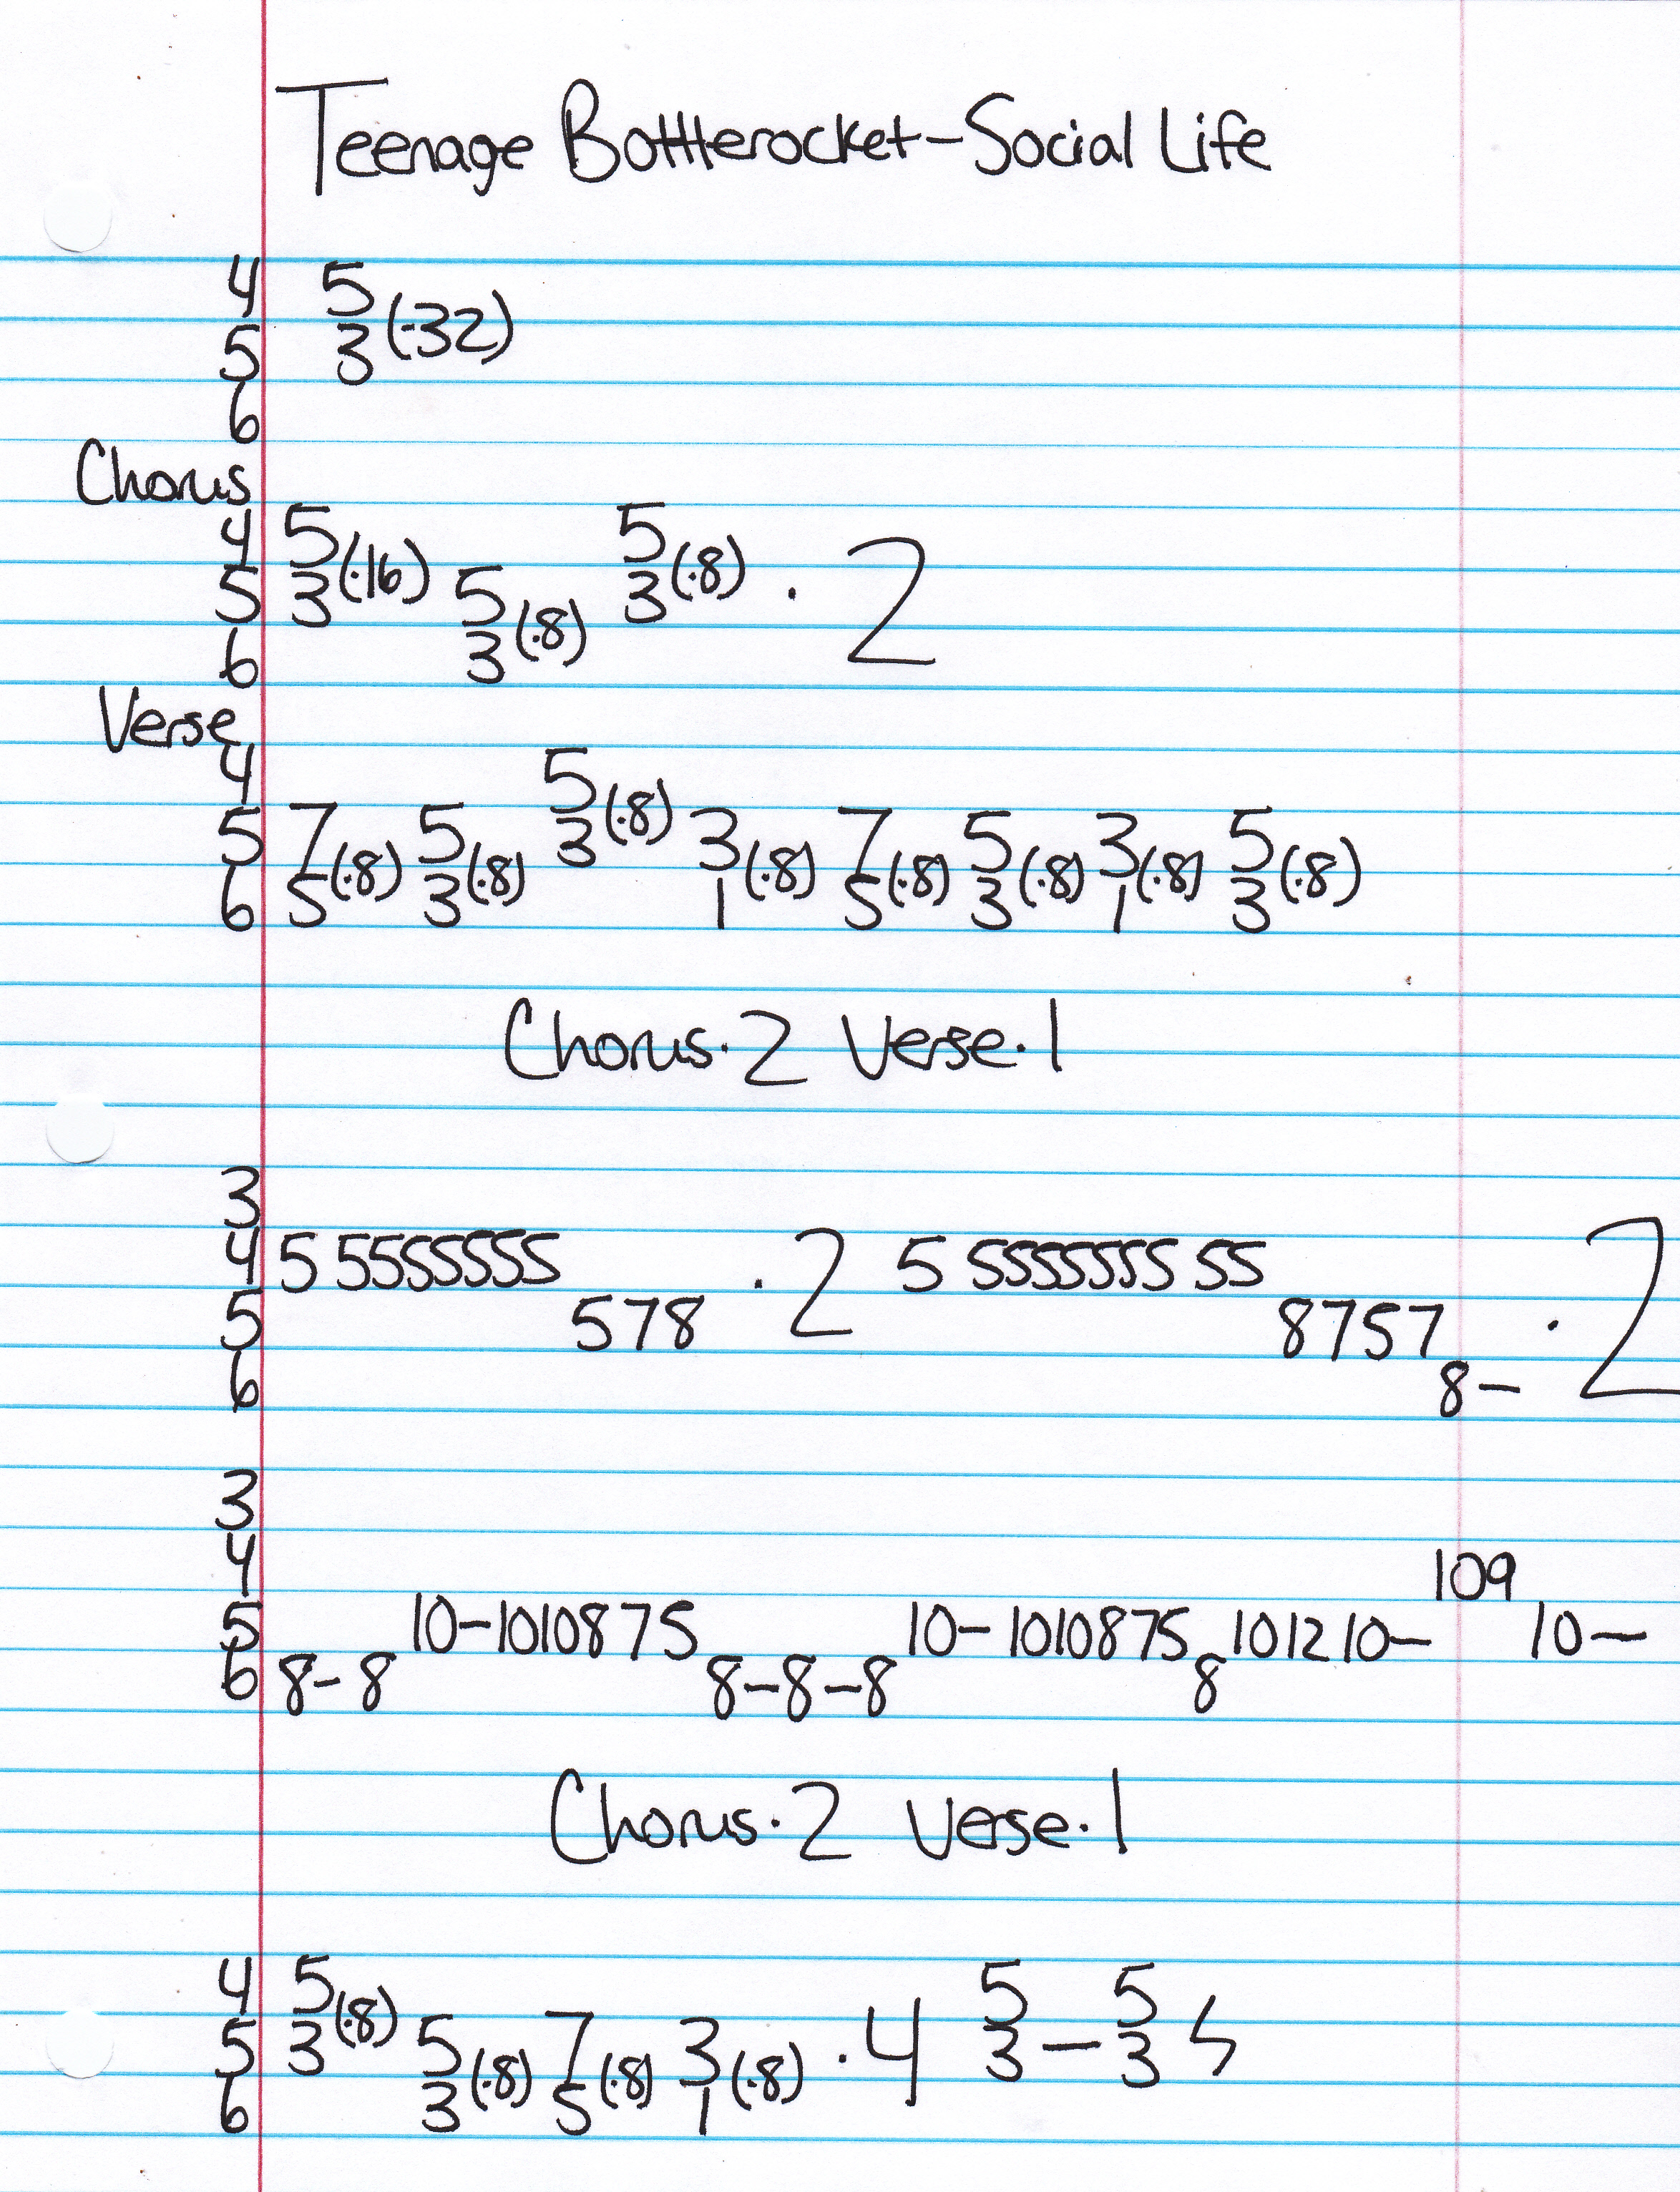 Teenage Bottlerocket-Social Life
4 5
5 3 (·32)
6
Chorus
4 5 5
5 3 (·16) 5 3 (·8) · 2
6 3 (·8)
Verse
4 5
5 7 5 3 (·8) 3 7 5 3 5
6 5 (·8) 3 (·8) 1 (·8) 5 (·8) 3 (·8) 1 (·8) 3 (·8)
Chorus·2 Verse·1
3
4 5 5555555 · 2 5 5555555 55
5 578 8757 · 2
6 8-
3
4 109
5 10-1010875 10-1010875 101210- 10-
6 8-8 8-8-8 8
Chorus·2 Verse·1
4 5 5 5
5 3 (·8) 5 7 3 · 4 3 - 3
6 3 (·8) 5 (·8) 1 (·8)